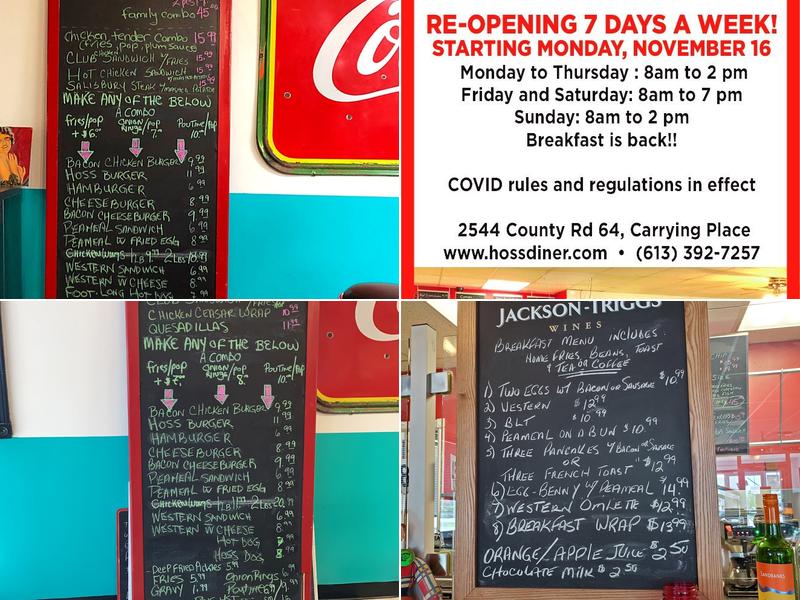 Family combo 45.00
Chicken tender Combo 15.99
(fries, pop, plum sauce
CLUB SANDWICH w/ FRIES 15.99
HOT CHICKEN SANDWICH 15.99
SALISBURY STEAK
MAKE ANY OF THE BELOW
A COMBO
fries/pop
+ $6.
ONION RINGS/POP
7.
POUTINE/POP
10.
BACON CHICKEN BURGER 9.99
HOSS BURGER 11.99
HAMBURGER 6.99
CHEESEBURGER 8.99
BACON CHEESEBURGER 9.99
PEAMEAL SANDWICH 6.99
PEAMEAL W FRIED EGG 8.99
WESTERN SANDWICH 6.99
WESTERN W CHEESE 8.99
FOOT-LONG HOT DOG
Co
RE-OPENING 7 DAYS A WEEK!
STARTING MONDAY, NOVEMBER 16
Monday to Thursday : 8am to 2 pm
Friday and Saturday: 8am to 7 pm
Sunday: 8am to 2 pm
Breakfast is back!!
COVID rules and regulations in effect
2544 County Rd 64, Carrying Place
www.hossdiner.com • (613) 392-7257
CHICKEN CEASAR WRAP 10.99
QUESADILLAS 11.99
MAKE ANY OF THE BELOW
A COMBO
fries/pop
ONION RINGS/POP
8.
POUTINE/POP
10.
BACON CHICKEN BURGER 9.99
HOSS BURGER 11.99
HAMBURGER 6.99
CHEESEBURGER 8.99
BACON CHEESEBURGER 9.99
PEAMEAL SANDWICH 6.99
PEAMEAL W FRIED EGG 8.99
WESTERN SANDWICH 6.99
WESTERN W CHEESE 8.99
HOT DOG
HOSS DOG 8.99
DEEP FRIED PICKLES 5.99
FRIES 5.99 Onion Rings
GRAVY 1.99 POUTINE
JACKSON-TRIGGS
WINES
BREAKFAST MENU INCLUDES:
HOME FRIES, BEANS, TOAST
& TEA OR COFFEE
1) TWO EGGS W/ BACON OR SAUSAGE $10.99
2) WESTERN $12.99
3) BLT $10.99
4) PEAMEAL ON A BUN $10.99
5) THREE PANCAKES W/BACON OR SAUSAGE
OR
THREE FRENCH TOAST " $12.99
6) EGG-BENNY W/ PEAMEAL $14.99
7) WESTERN OMLETTE $12.99
8) BREAKFAST WRAP $13.99
ORANGE/APPLE JUICE $2.50
CHOCOLATE MILK $2.50
SANDBANKS